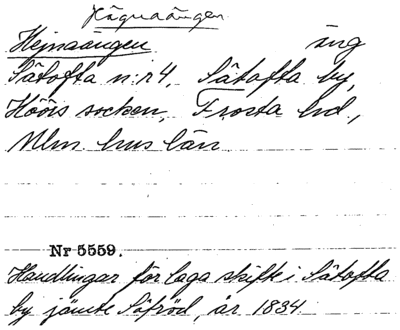 Hägnaängen
Hejnaängen äng
Sätofta n:r 4, Sätofta by,
Höörs socken, Frosta hd,
Mlm hus län
Nr 5559.
Handlingar för laga skifte i Sätofta
by jämte Säfröd, år 1834.